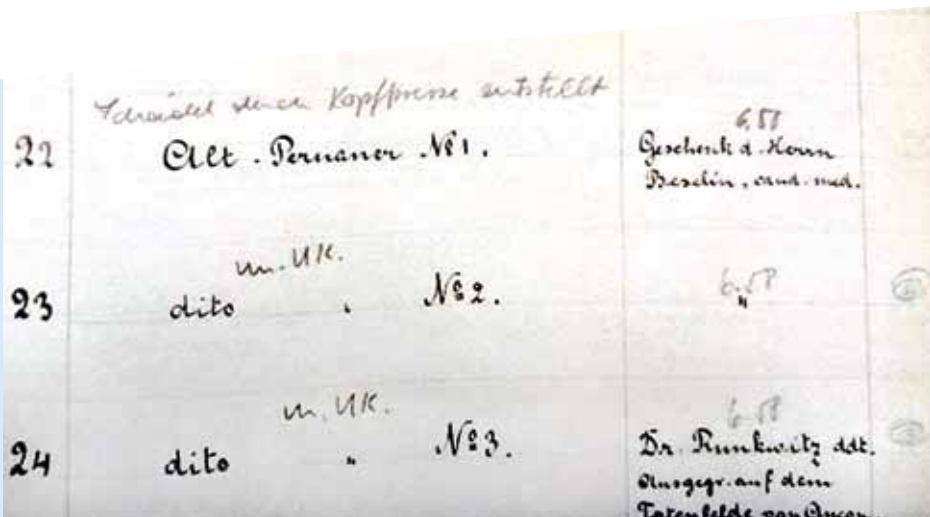 Schädel durch Kopfpresse entstellt
22 Alt-Peruaner № 1.
6.58
Geschenk d. Herrn
Beselin, cand. med.
m. UK.
23 dito " № 2.
6.58
"
m. UK.
24 dito " № 3.
6.58
Dr. Runkwitz ddt.
Ausgegr. auf dem
Totenfelde von Ancon